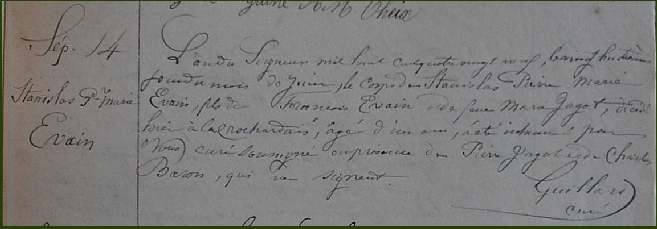 Sép. 14
Stanislas P. Marie
Evain
L'an du Seigneur mil huit cent quatre vingt neuf, le vingt huitième
jour du mois de Juin, le corps de Stanislas Pierre Marie
Evain, fils de François Evain et de feue Marie Jagot, décédé
hier à la, âgé d'un an, a été inhumé par
Nous curé soussigné en présence de Pierre Jagot et de Charles
Baron, qui ne signent.
Guillard
curé